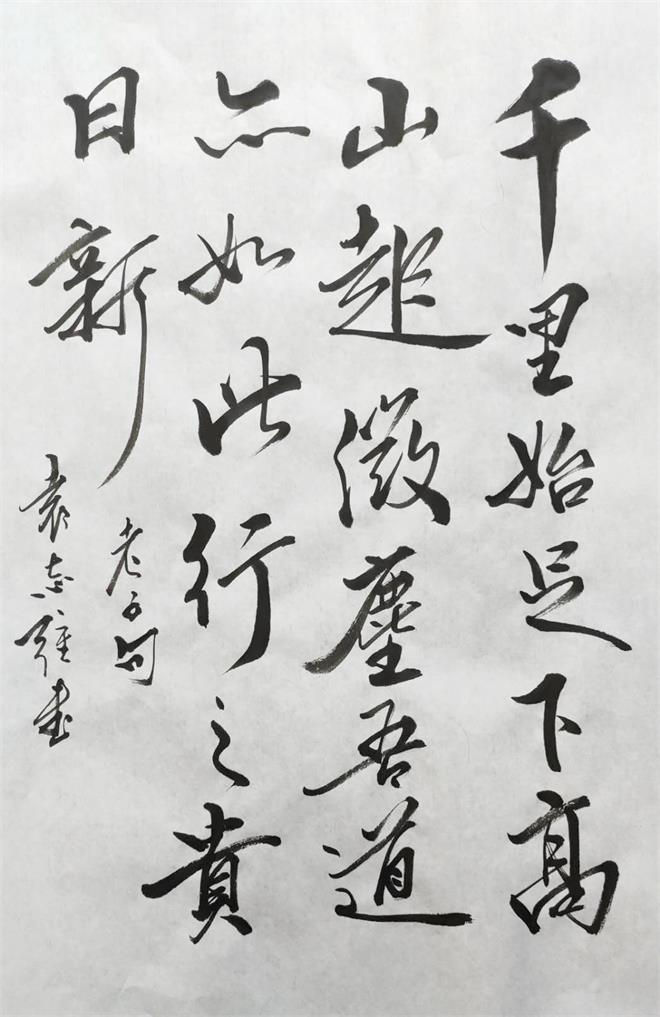 千里始足下高
山起微塵吾道
亦如此行之貴
日新
老子句
袁志强书